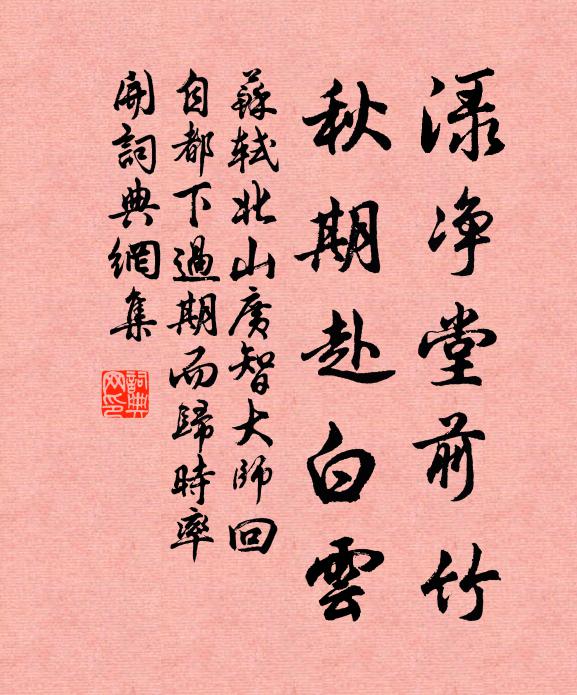 渌净堂前竹
秋期赴白雲
蘇軾北山廣智大師回
自都下過期而歸時率
開詞典網集
詞典网印